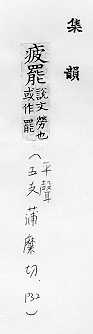 集韻
疲罷說文勞也
或作罷
(平聲
五支蒲糜切.132)